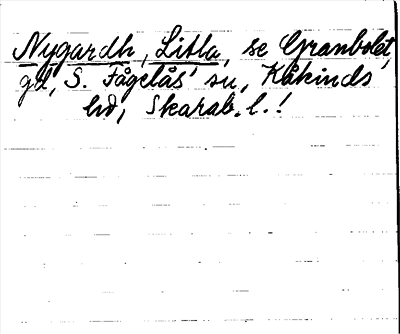 Nygardh, Litla, se Granbolet,
gd, S. Fågelås sn, Kåkinds
hd, Skarab. l.!